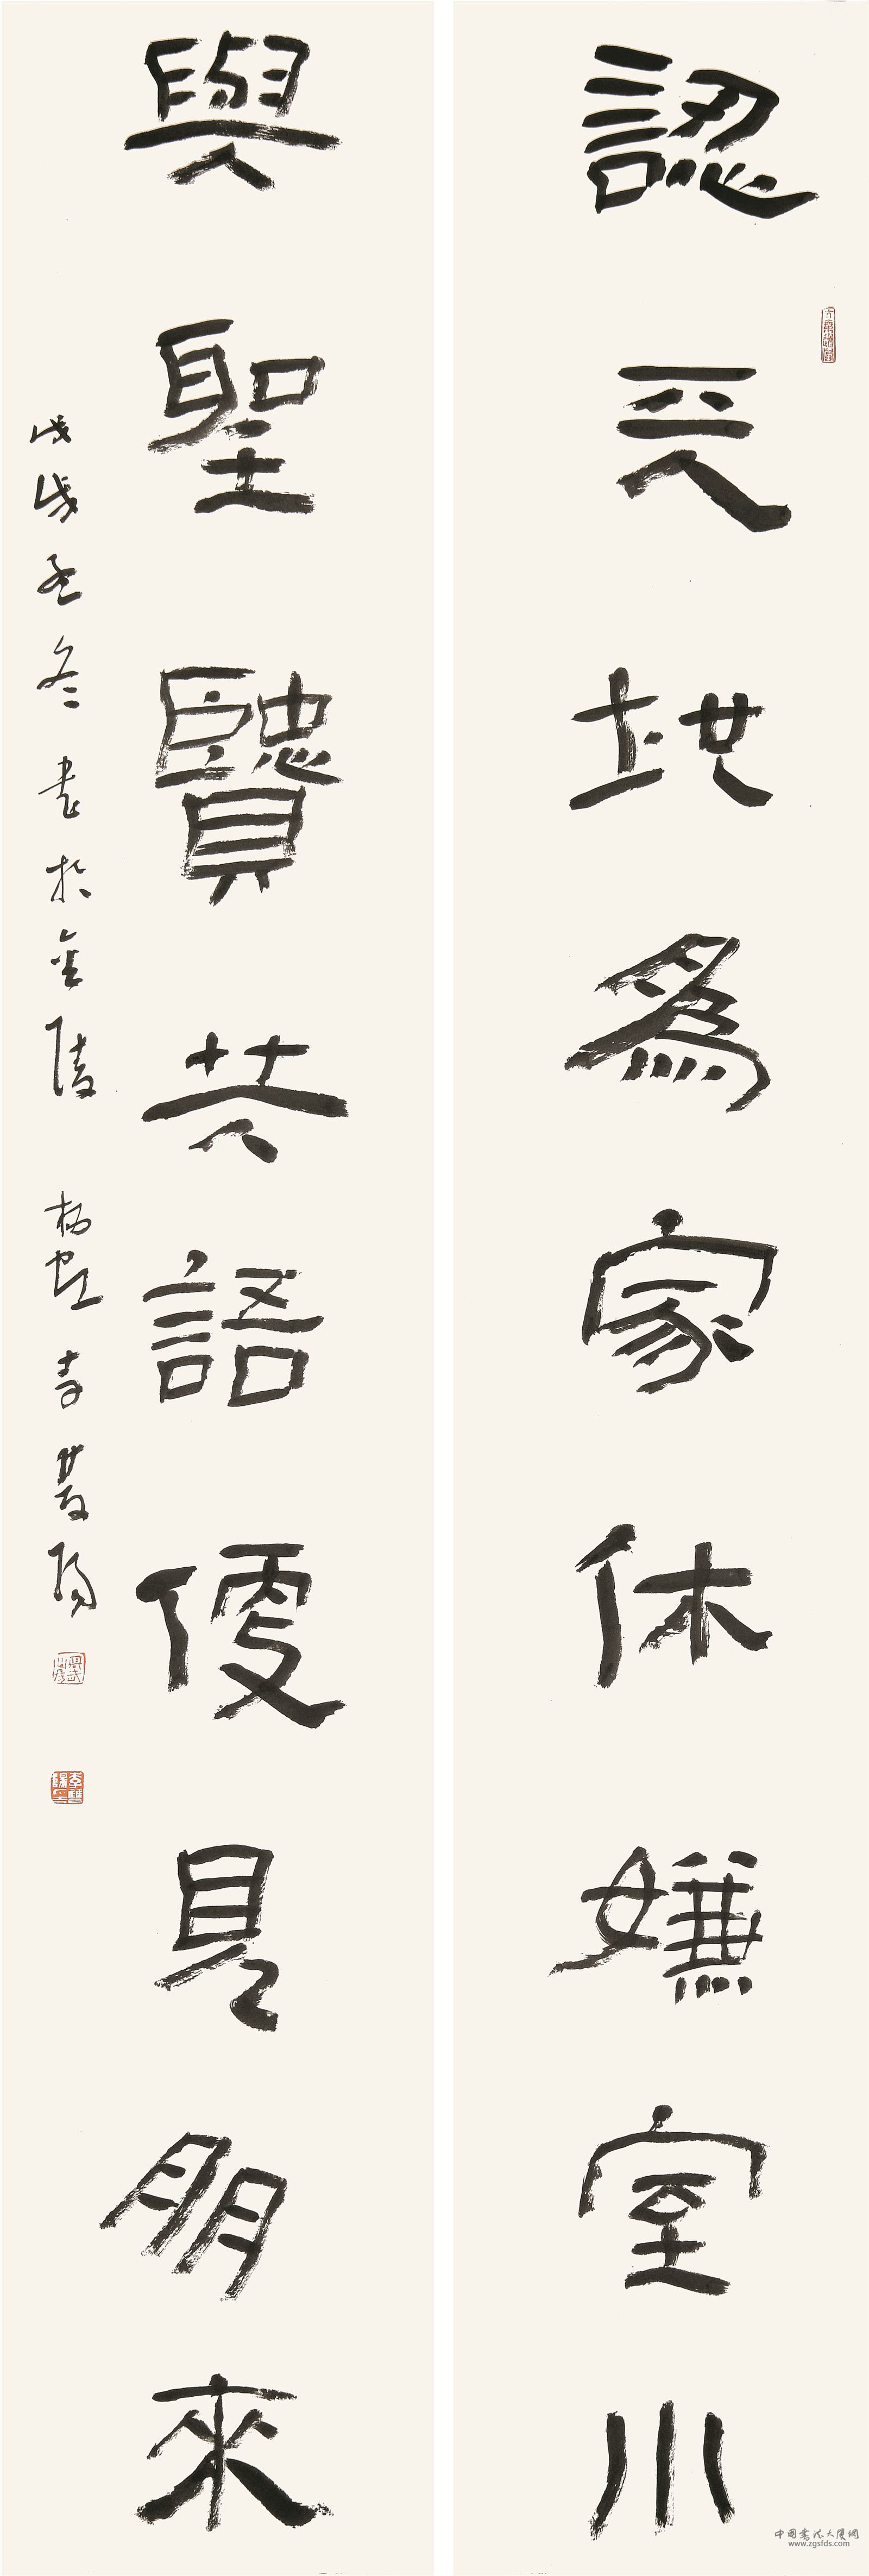 認天地爲家休嫌室小
與聖賢共語便見朋來
戊戌孟冬書於金陵
李雙陽
中国書法大厦網
www.zgsfds.com